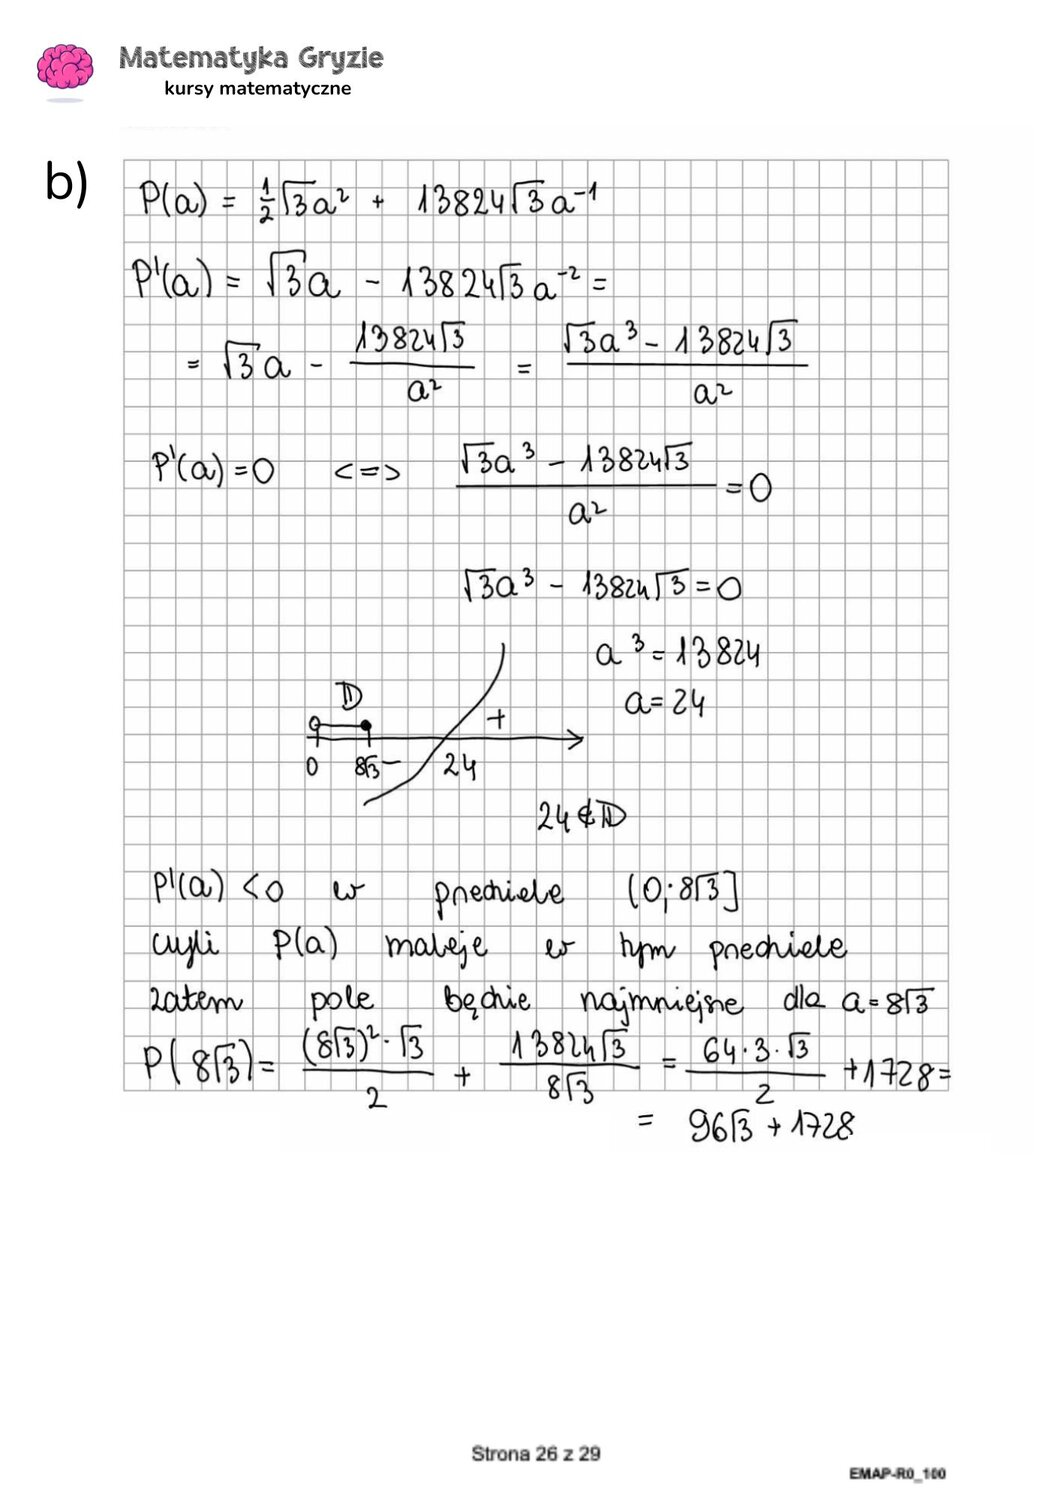 Matematyka Gryzie
kursy matematyczne
b)
P(a) = ½√3a² + 13824√3a⁻¹
P'(a) = √3a - 13824√3a⁻² =
= √3a - 13824√3/a² = (√3a³ - 13824√3)/a²
P'(a) = 0 <=> (√3a³ - 13824√3)/a² = 0
√3a³ - 13824√3 = 0
a³ = 13824
a = 24
D
+
0 8√3 - 24
24 ∉ D
P'(a) < 0 w przedziele (0; 8√3]
czyli P(a) maleje w tym przedziele
zatem pole będzie najmniejsze dla a = 8√3
P(8√3) = ((8√3)²·√3)/2 + 13824√3/8√3 = (64·3·√3)/2 + 1728 =
= 96√3 + 1728
Strona 26 z 29
EMAP-R0_100